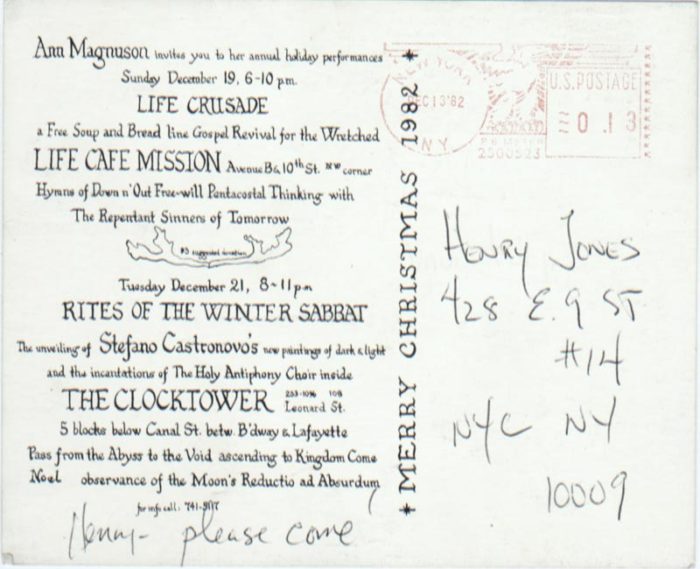 Ann Magnuson invites you to her annual holiday performances
Sunday December 19, 6-10 p.m.
LIFE CRUSADE
a Free Soup and Bread line Gospel Revival for the Wretched
LIFE CAFE MISSION Avenue B & 10th St. NW corner
Hymns of Down n' Out Free-will Pentacostal Thinking with
The Repentant Sinners of Tomorrow
$3 suggested donation
Tuesday December 21, 8-11 pm
RITES OF THE WINTER SABBAT
The unveiling of Stefano Castronovo's new paintings of dark & light
and the incantations of The Holy Antiphony Choir inside
THE CLOCKTOWER 233-1096 108 Leonard St.
5 blocks below Canal St. betw. B'dway & Lafayette
Pass from the Abyss to the Void ascending to Kingdom Come
Noel observance of the Moon's Reductio ad Absurdum
for info call: 741-9117
Henry- please come
* MERRY CHRISTMAS 1982 *
NEW YORK
DEC 13 '82
N.Y.
U.S. POSTAGE
0.13
PB METER
2500523
Henry Jones
428 E. 9 ST
#14
NYC NY
10009